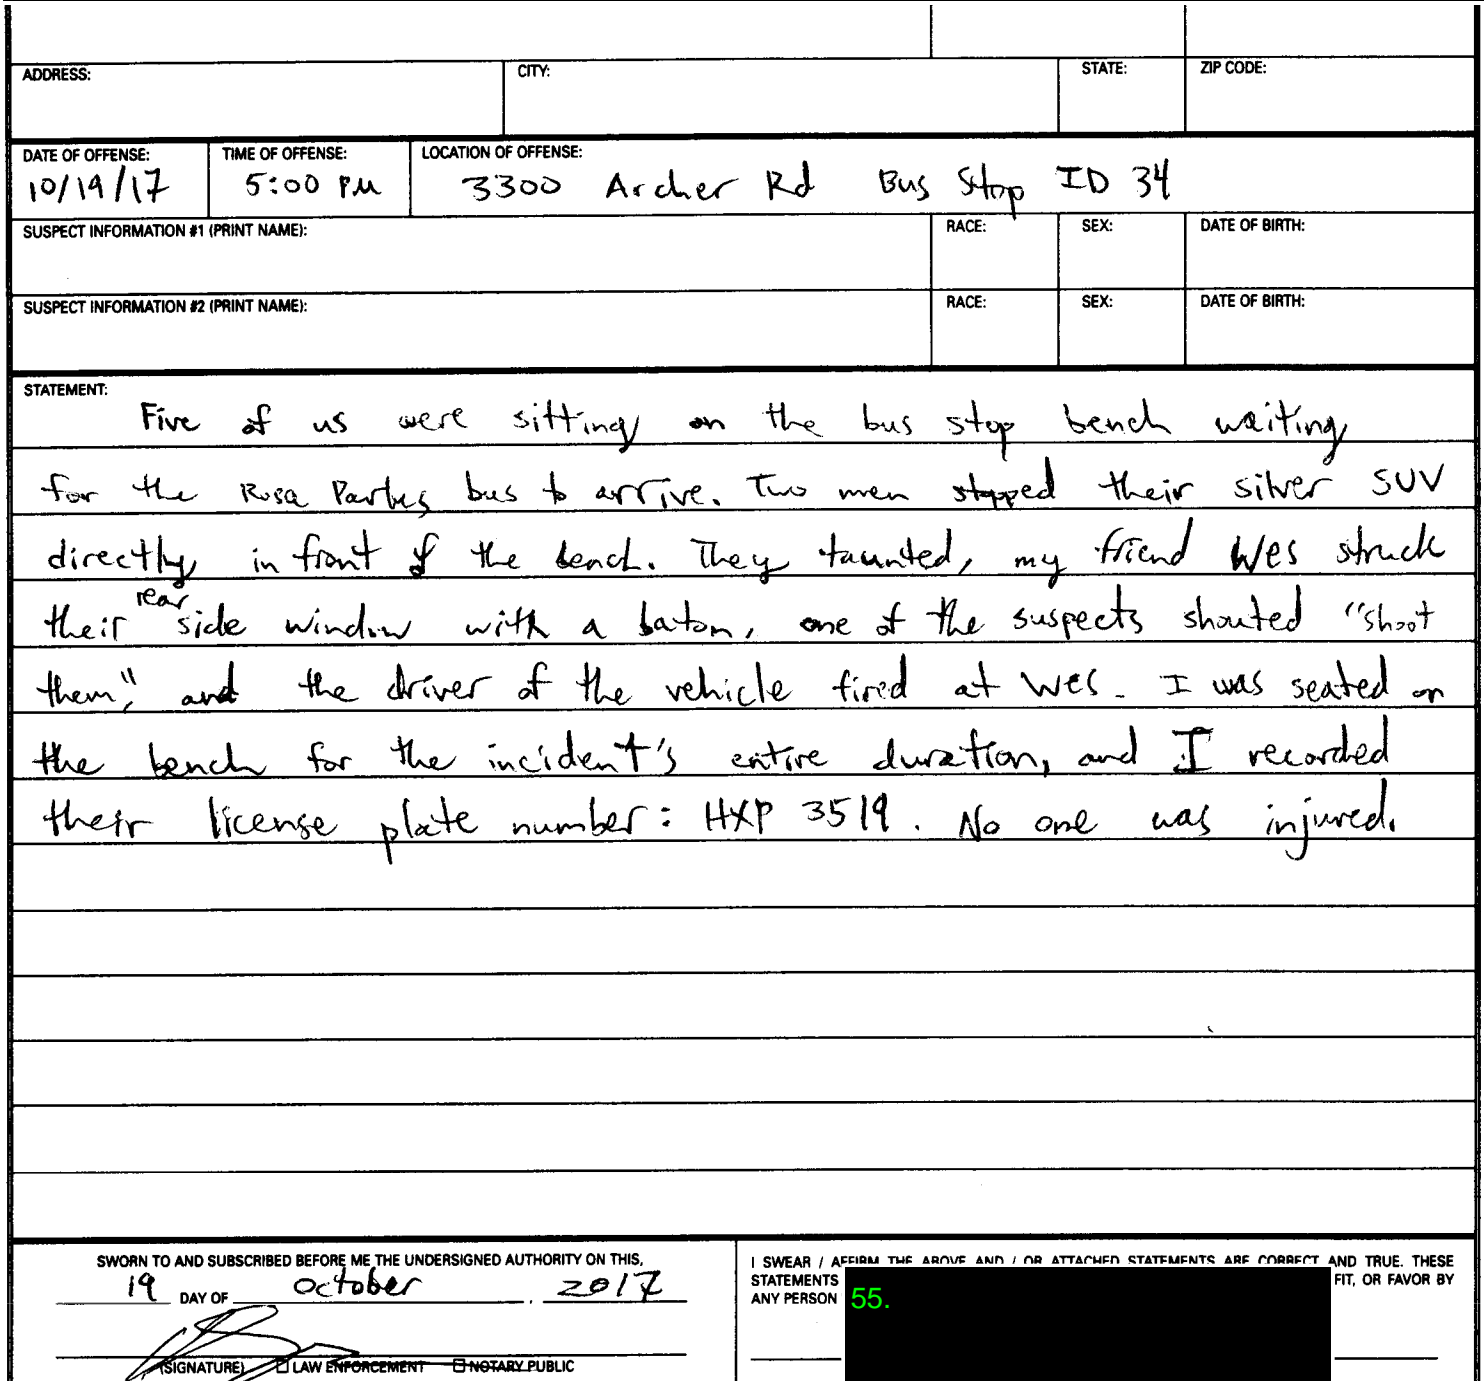 ADDRESS: CITY: STATE: ZIP CODE:
DATE OF OFFENSE: TIME OF OFFENSE: LOCATION OF OFFENSE:
10/19/17 5:00 PM 3300 Archer Rd Bus Stop ID 34
SUSPECT INFORMATION #1 (PRINT NAME): RACE: SEX: DATE OF BIRTH:
SUSPECT INFORMATION #2 (PRINT NAME): RACE: SEX: DATE OF BIRTH:
STATEMENT:
Five of us were sitting on the bus stop bench waiting
for the Rosa Parks bus to arrive. Two men stopped their silver SUV
directly in front of the bench. They taunted, my friend Wes struck
rear
their side window with a baton, one of the suspects shouted "shoot
them," and the driver of the vehicle fired at Wes. I was seated on
the bench for the incident's entire duration, and I recorded
their license plate number: HXP 3519. No one was injured.
SWORN TO AND SUBSCRIBED BEFORE ME THE UNDERSIGNED AUTHORITY ON THIS,
19 DAY OF October, 2017
(SIGNATURE) LAW ENFORCEMENT NOTARY PUBLIC
I SWEAR / AFFIRM THE ABOVE AND / OR ATTACHED STATEMENTS ARE CORRECT AND TRUE. THESE
STATEMENTS FIT, OR FAVOR BY
ANY PERSON 55.